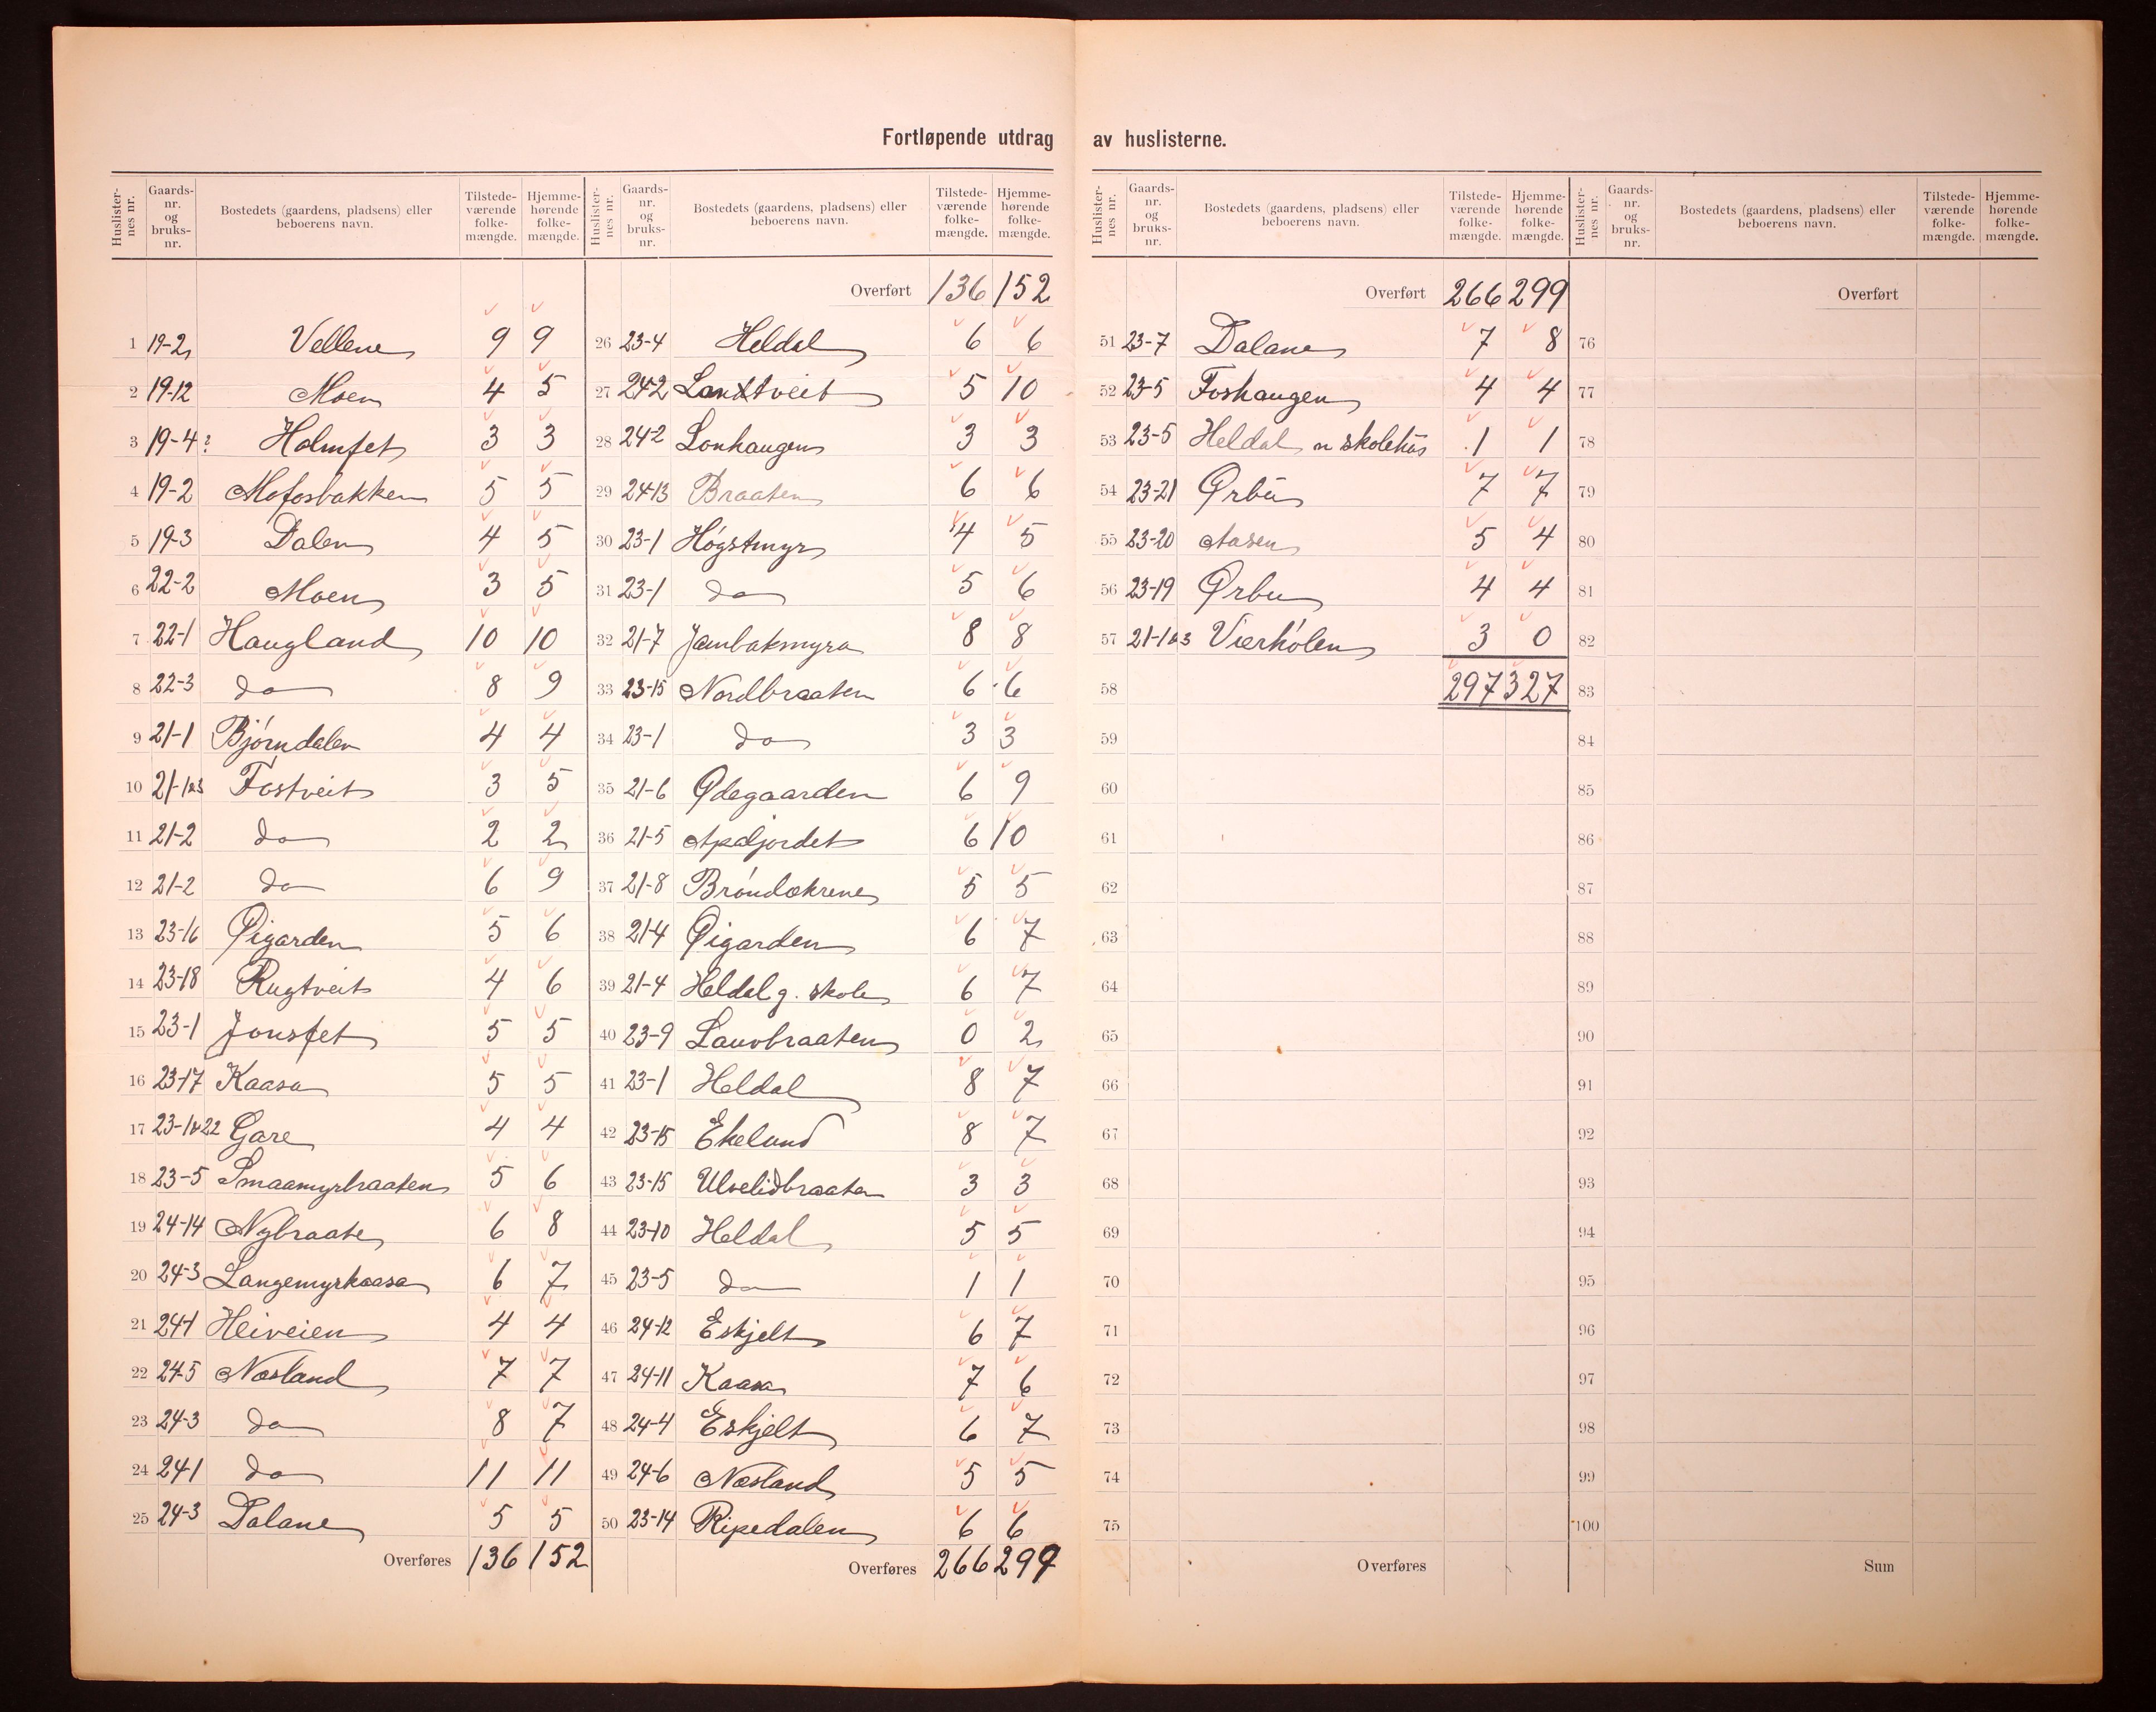 Fortløpende utdrag av huslisterne.
Huslisternes nr. Gaardsnr. og bruksnr. Bostedets (gaardens, pladsens) eller beboerens navn. Tilstedeværende folkemængde. Hjemmehørende folkemængde.
1 19-2 Vellene 9 9
2 19-12 Moen 4 5
3 19-4? Holmfet 3 3
4 19-2 Mofosbakken 5 5
5 19-3 Dalen 4 5
6 22-2 Moen 3 5
7 22-1 Haugland 10 10
8 22-3 do 8 9
9 21-1 Bjørndalen 4 4
10 21-1&3 Fostveit 3 5
11 21-2 do 2 2
12 21-2 do 6 9
13 23-16 Øigarden 5 6
14 23-18 Rugtveit 4 6
15 23-1 Jonsfet 5 5
16 23-17 Kaasa 5 5
17 23-1&22 Gare 4 4
18 23-5 Smaamyrbraaten 5 6
19 24-14 Nybraate 6 8
20 24-3 Langemyrkaasa 6 7
21 24-1 Heiveien 4 4
22 24-5 Næsland 7 7
23 24-3 do 8 7
24 24-1 do 11 11
25 24-3 Dalane 5 5
Overføres 136 152
Huslisternes nr. Gaardsnr. og bruksnr. Bostedets (gaardens, pladsens) eller beboerens navn. Tilstedeværende folkemængde. Hjemmehørende folkemængde.
Overført 136 152
26 23-4 Heldal 6 6
27 24-2 Landtveit 5 10
28 24-2 Lonhaugen 3 3
29 24-13 Braaten 6 6
30 23-1 Høgstmyr 4 5
31 23-1 do 5 6
32 21-7 Jambakmyra 8 8
33 23-15 Nordbraaten 6 6
34 23-1 do 3 3
35 21-6 Ødegaarden 6 9
36 21-5 Apaljordet 6 10
37 21-8 Brøndækrene 5 5
38 21-4 Øigarden 6 7
39 21-4 Heldal g. skole 6 7
40 23-9 Lauvbraaten 0 2
41 23-1 Heldal 8 7
42 23-15 Ekelund 8 7
43 23-15 Ulvelidbraaten 3 3
44 23-10 Heldal 5 5
45 23-5 do 1 1
46 24-12 Eskjelt 6 7
47 24-11 Kaasa 7 6
48 24-4 Eskjelt 6 7
49 24-6 Næsland 5 5
50 23-14 Ripedalen 6 6
Overføres 266 299
Huslisternes nr. Gaardsnr. og bruksnr. Bostedets (gaardens, pladsens) eller beboerens navn. Tilstedeværende folkemængde. Hjemmehørende folkemængde.
Overført 266 299
51 23-7 Dalane 7 8
52 23-5 Foshaugen 4 4
53 23-5 Heldal n skolehus 1 1
54 23-21 Ørbu 7 7
55 23-20 Aasen 5 4
56 23-19 Ørbu 4 4
57 21-1&3 Vierholen 3 0
58 297 327
59
60
61
62
63
64
65
66
67
68
69
70
71
72
73
74
75
Overføres
Huslisternes nr. Gaardsnr. og bruksnr. Bostedets (gaardens, pladsens) eller beboerens navn. Tilstedeværende folkemængde. Hjemmehørende folkemængde.
Overført
76
77
78
79
80
81
82
83
84
85
86
87
88
89
90
91
92
93
94
95
96
97
98
99
100
Sum